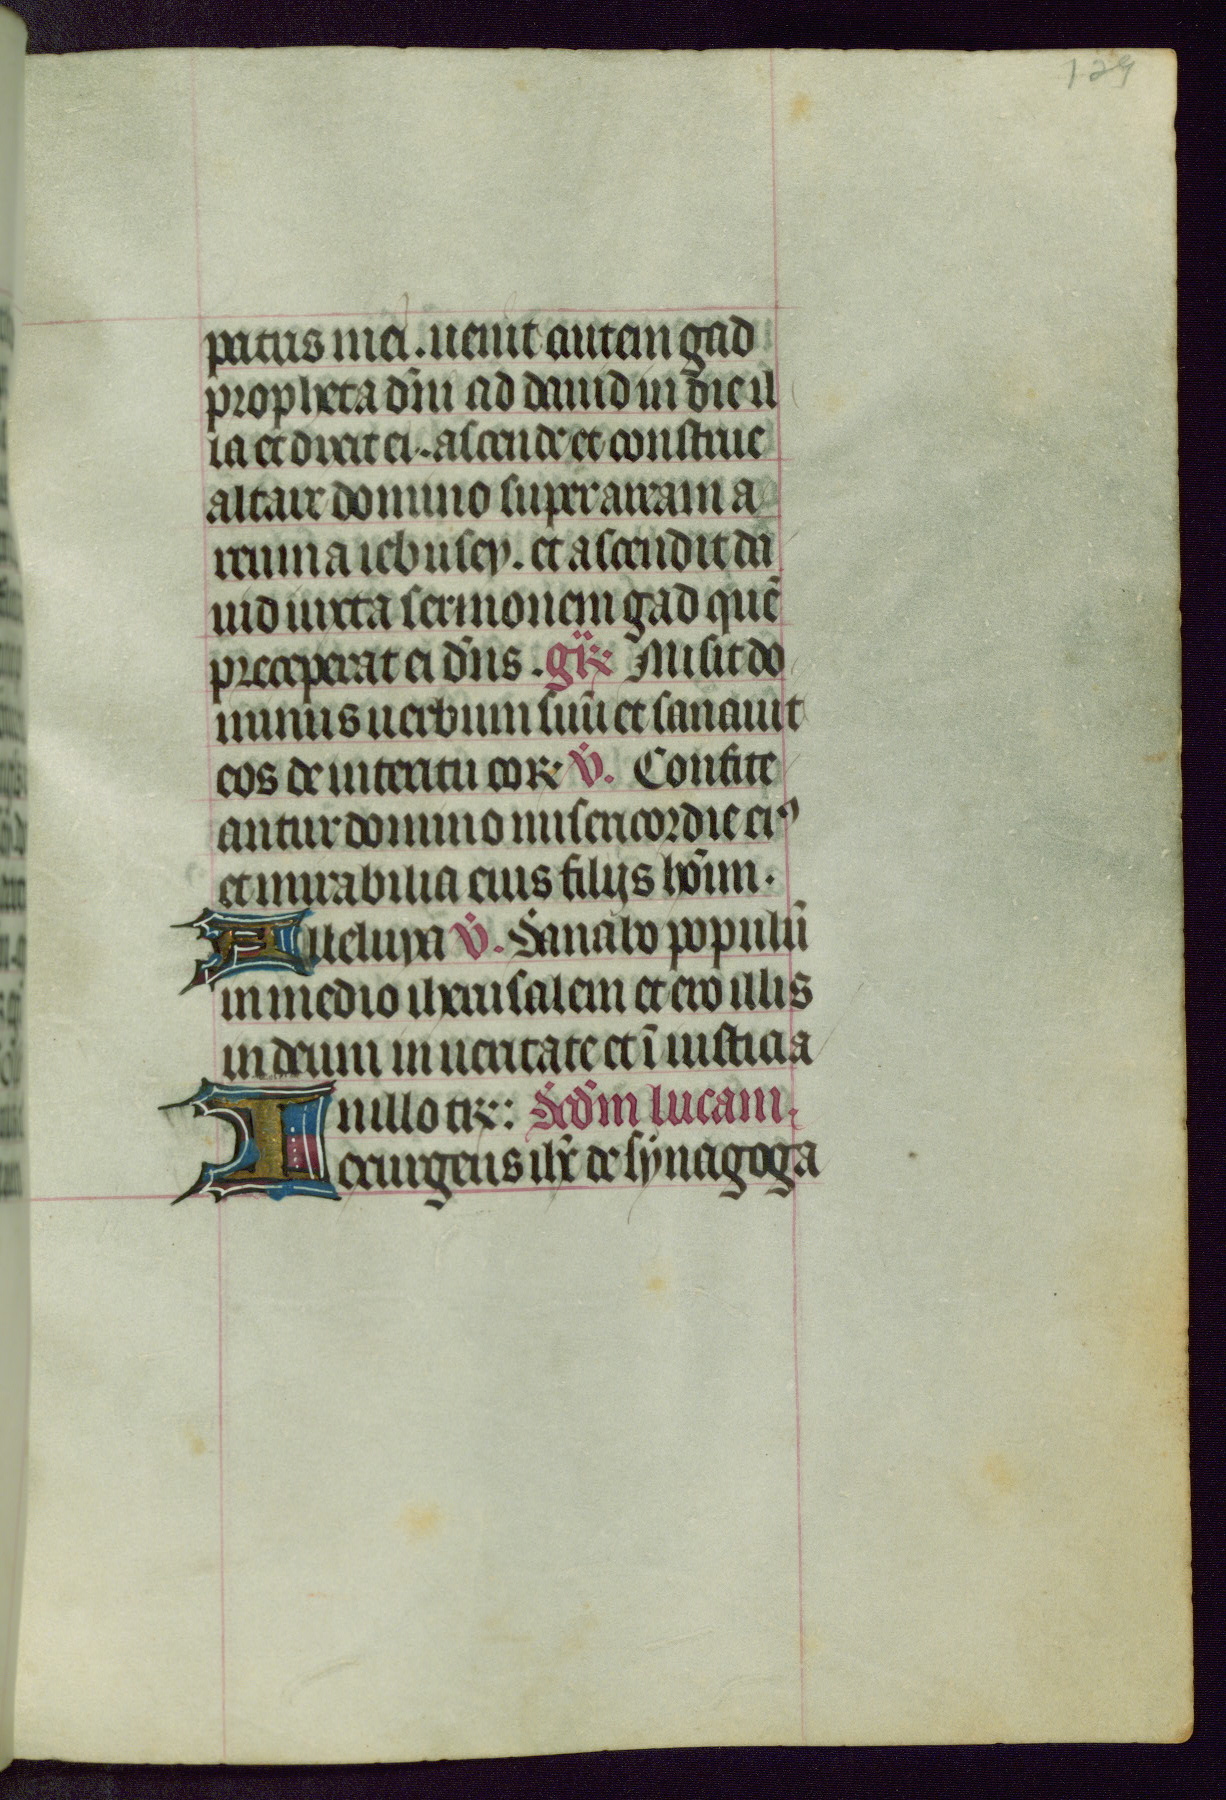 129
patris mei. uenit autem gad
propheta dñi ad dauid in die il
la et dixit ei. ascende et construe
altare domino super arram a
reuma iebusey. et ascendit da
uid iuxta sermonem gad quẽ
preceperat ei dñs. gͥꝝ Misit do
minus uerbum suũ et sanauit
eos de interitu eoꝝ V̇. Confite
antur domino misericordie eiꝰ
et mirabilia eius filijs hoĩm.
Alleluya V̇. Sanabo populũ
in medio iherusalem et ero illis
in deum in ueritate et ĩ iusticia
In illo tꝝ: Scdm lucam.
exurgens ihc̃ de synagoga